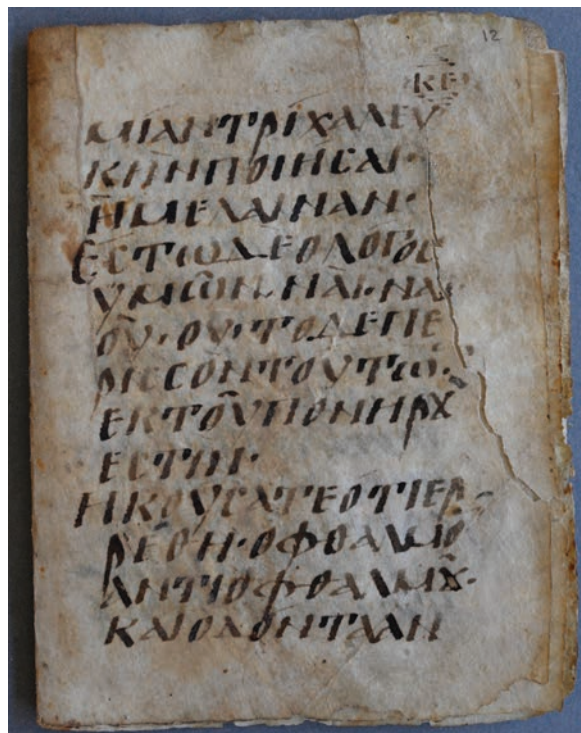 12
ΚΕ
ΜΙΑΝΤΡΙΧΑΛΕΥ
ΚΗΝΠΟΙΗϹΑΙ·
ΗΜΕΛΑΙΝΑΝ·
ΕϹΤΩΔΕΟΛΟΓΟϹ
ΥΜΩΝ·ΝΑΙ·ΝΑΙ
ΟΥ·ΟΥ·ΤΟΔΕΠΕ
ΡΙϹϹΟΝΤΟΥΤΩ·
ΕΚΤΟΥΠΟΝΗΡȢ
ΕϹΤΙΝ·
ΗΚΟΥϹΑΤΕΟΤΙΕΡ
ΡΕΘΗ·ΟΦΘΑΛΜΟ
ΑΝΤΙΟΦΘΑΛΜȢ·
ΚΑΙΟΔΟΝΤΑΑΝ